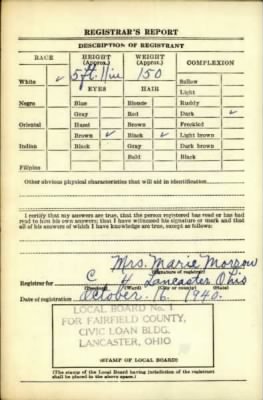 REGISTRAR'S REPORT
DESCRIPTION OF REGISTRANT
RACE HEIGHT (Approx.) WEIGHT (Approx.) COMPLEXION
5 ft. 11 in 150
White ✓ Sallow
EYES HAIR Light
Negro Blue Blonde Ruddy
Gray Red Dark ✓
Oriental Hazel Brown Freckled
Brown ✓ Black ✓ Light brown
Indian Black Gray Dark brown
Bald Black
Filipino
Other obvious physical characteristics that will aid in identification
I certify that my answers are true; that the person registered has read or has had
read to him his own answers; that I have witnessed his signature or mark and that
all of his answers of which I have knowledge are true, except as follows:
Mrs. Marie Morrow
(Signature of registrar)
Registrar for C 4 Lancaster Ohio
(Precinct) (Ward) (City or county) (State)
Date of registration October 16, 1940.
LOCAL BOARD No. 1
FOR FAIRFIELD COUNTY,
CIVIC LOAN BLDG.
LANCASTER, OHIO
(STAMP OF LOCAL BOARD)
(The stamp of the Local Board having jurisdiction of the registrant shall
be placed in the above space.)